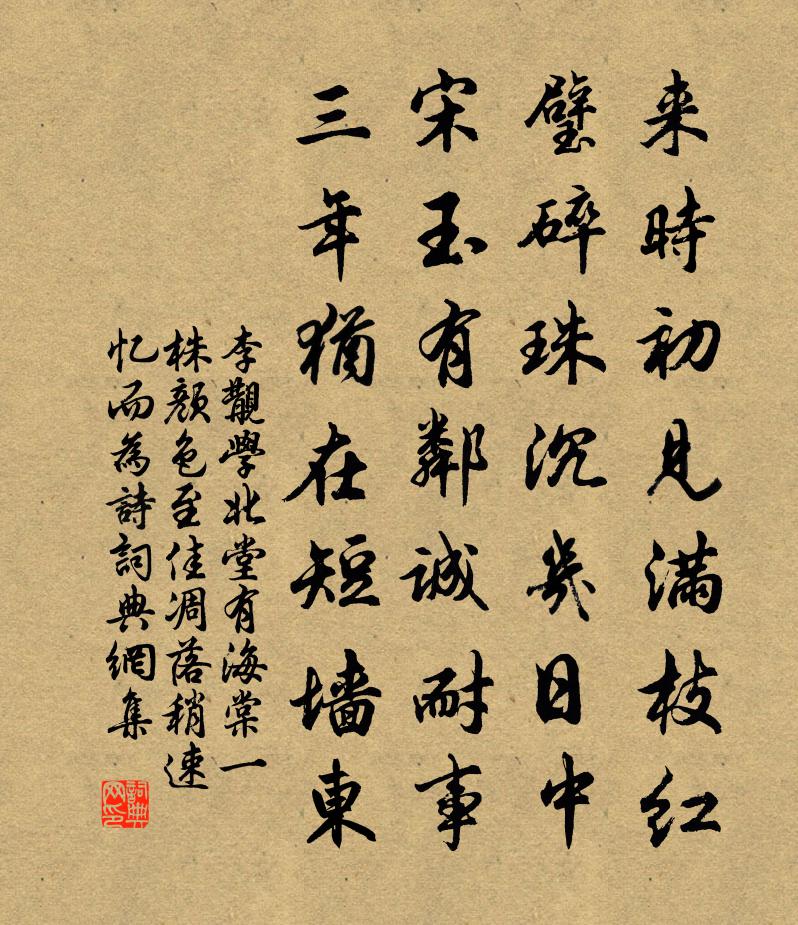 来時初見滿枝紅
璧碎珠沉幾日中
宋玉有鄰誠耐事
三年猶在短墻東
李觀學北堂有海棠一
株顏色至佳凋落稍速
忆而為詩詞典網集
詞典网印